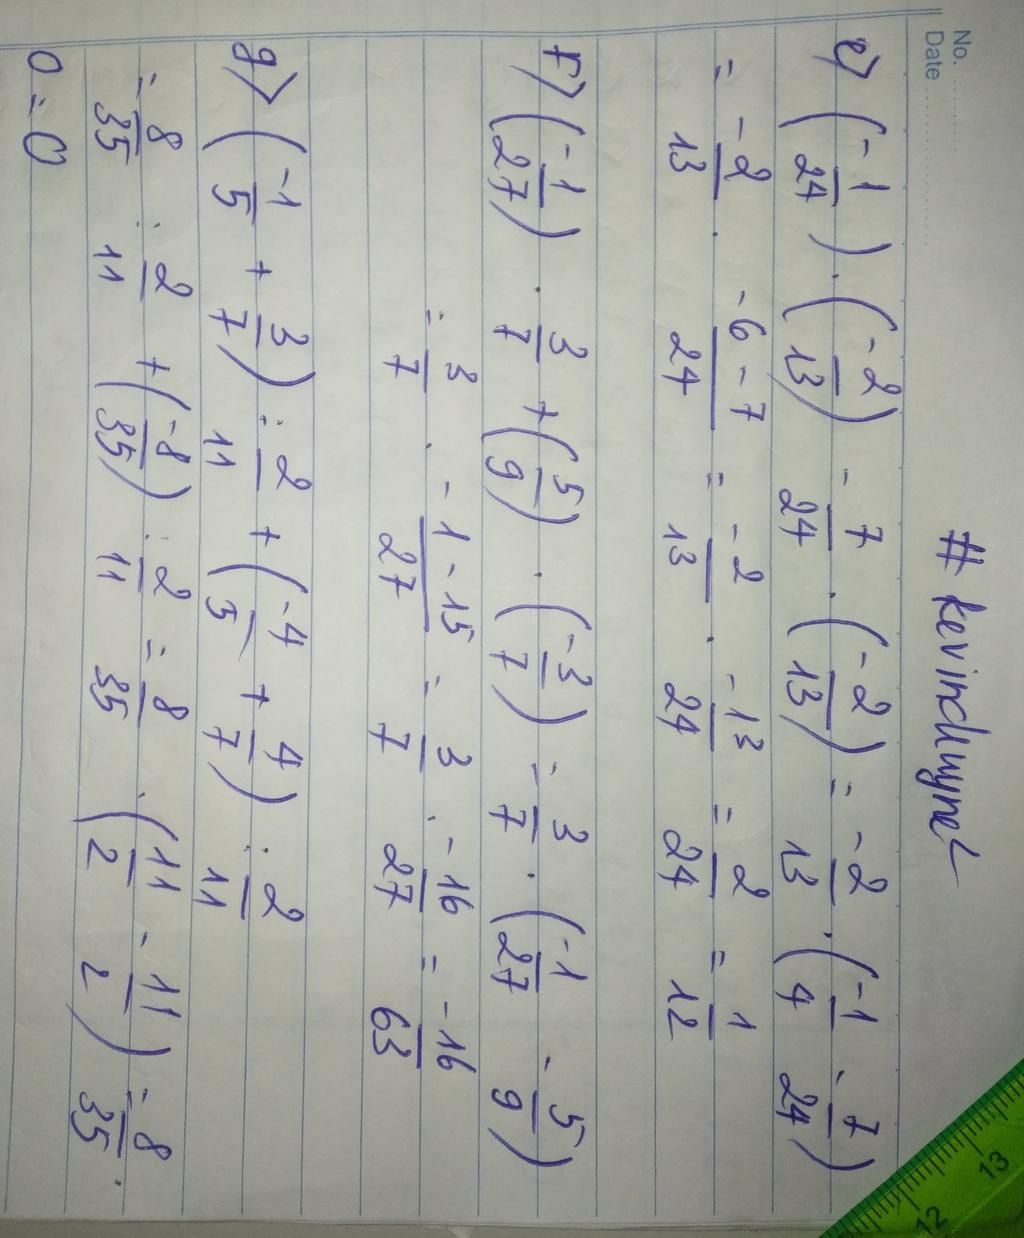 No.
Date
# kevinduyne
e) (-1/24) . (-2/13) - 7/24 . (-2/13) = -2/13 . (-1/4 - 7/24)
= -2/13 . -6-7/24 = -2/13 . -13/24 = 2/24 = 1/12
f) (-1/27) . 3/7 + (5/9) . (-3/7) = 3/7 . (-1/27 - 5/9)
= 3/7 . -1-15/27 = 3/7 . -16/27 = -16/63
g) (-1/5 + 3/7) : 2/11 + (-4/5 + 4/7) : 2/11
= 8/35 : 2/11 + (-8/35) : 2/11 = 8/35 . (11/2 - 11/2) = 8/35 .
0 = 0
13
12